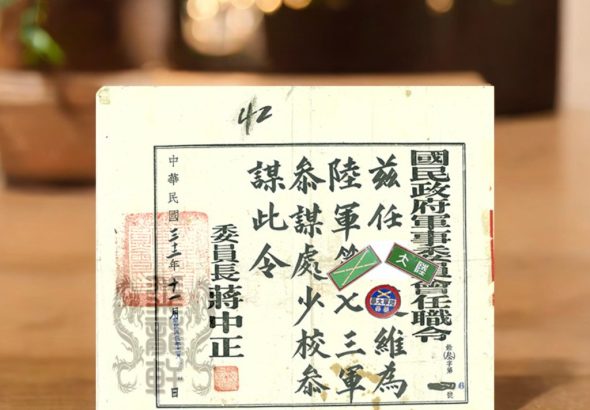 42
國民政府軍事委員會任職令
字第 號
兹任 維為
陸軍第七三軍
參謀處少校參
謀此令
委員長蔣中正
中華民國三十二年十一月 日
陸大